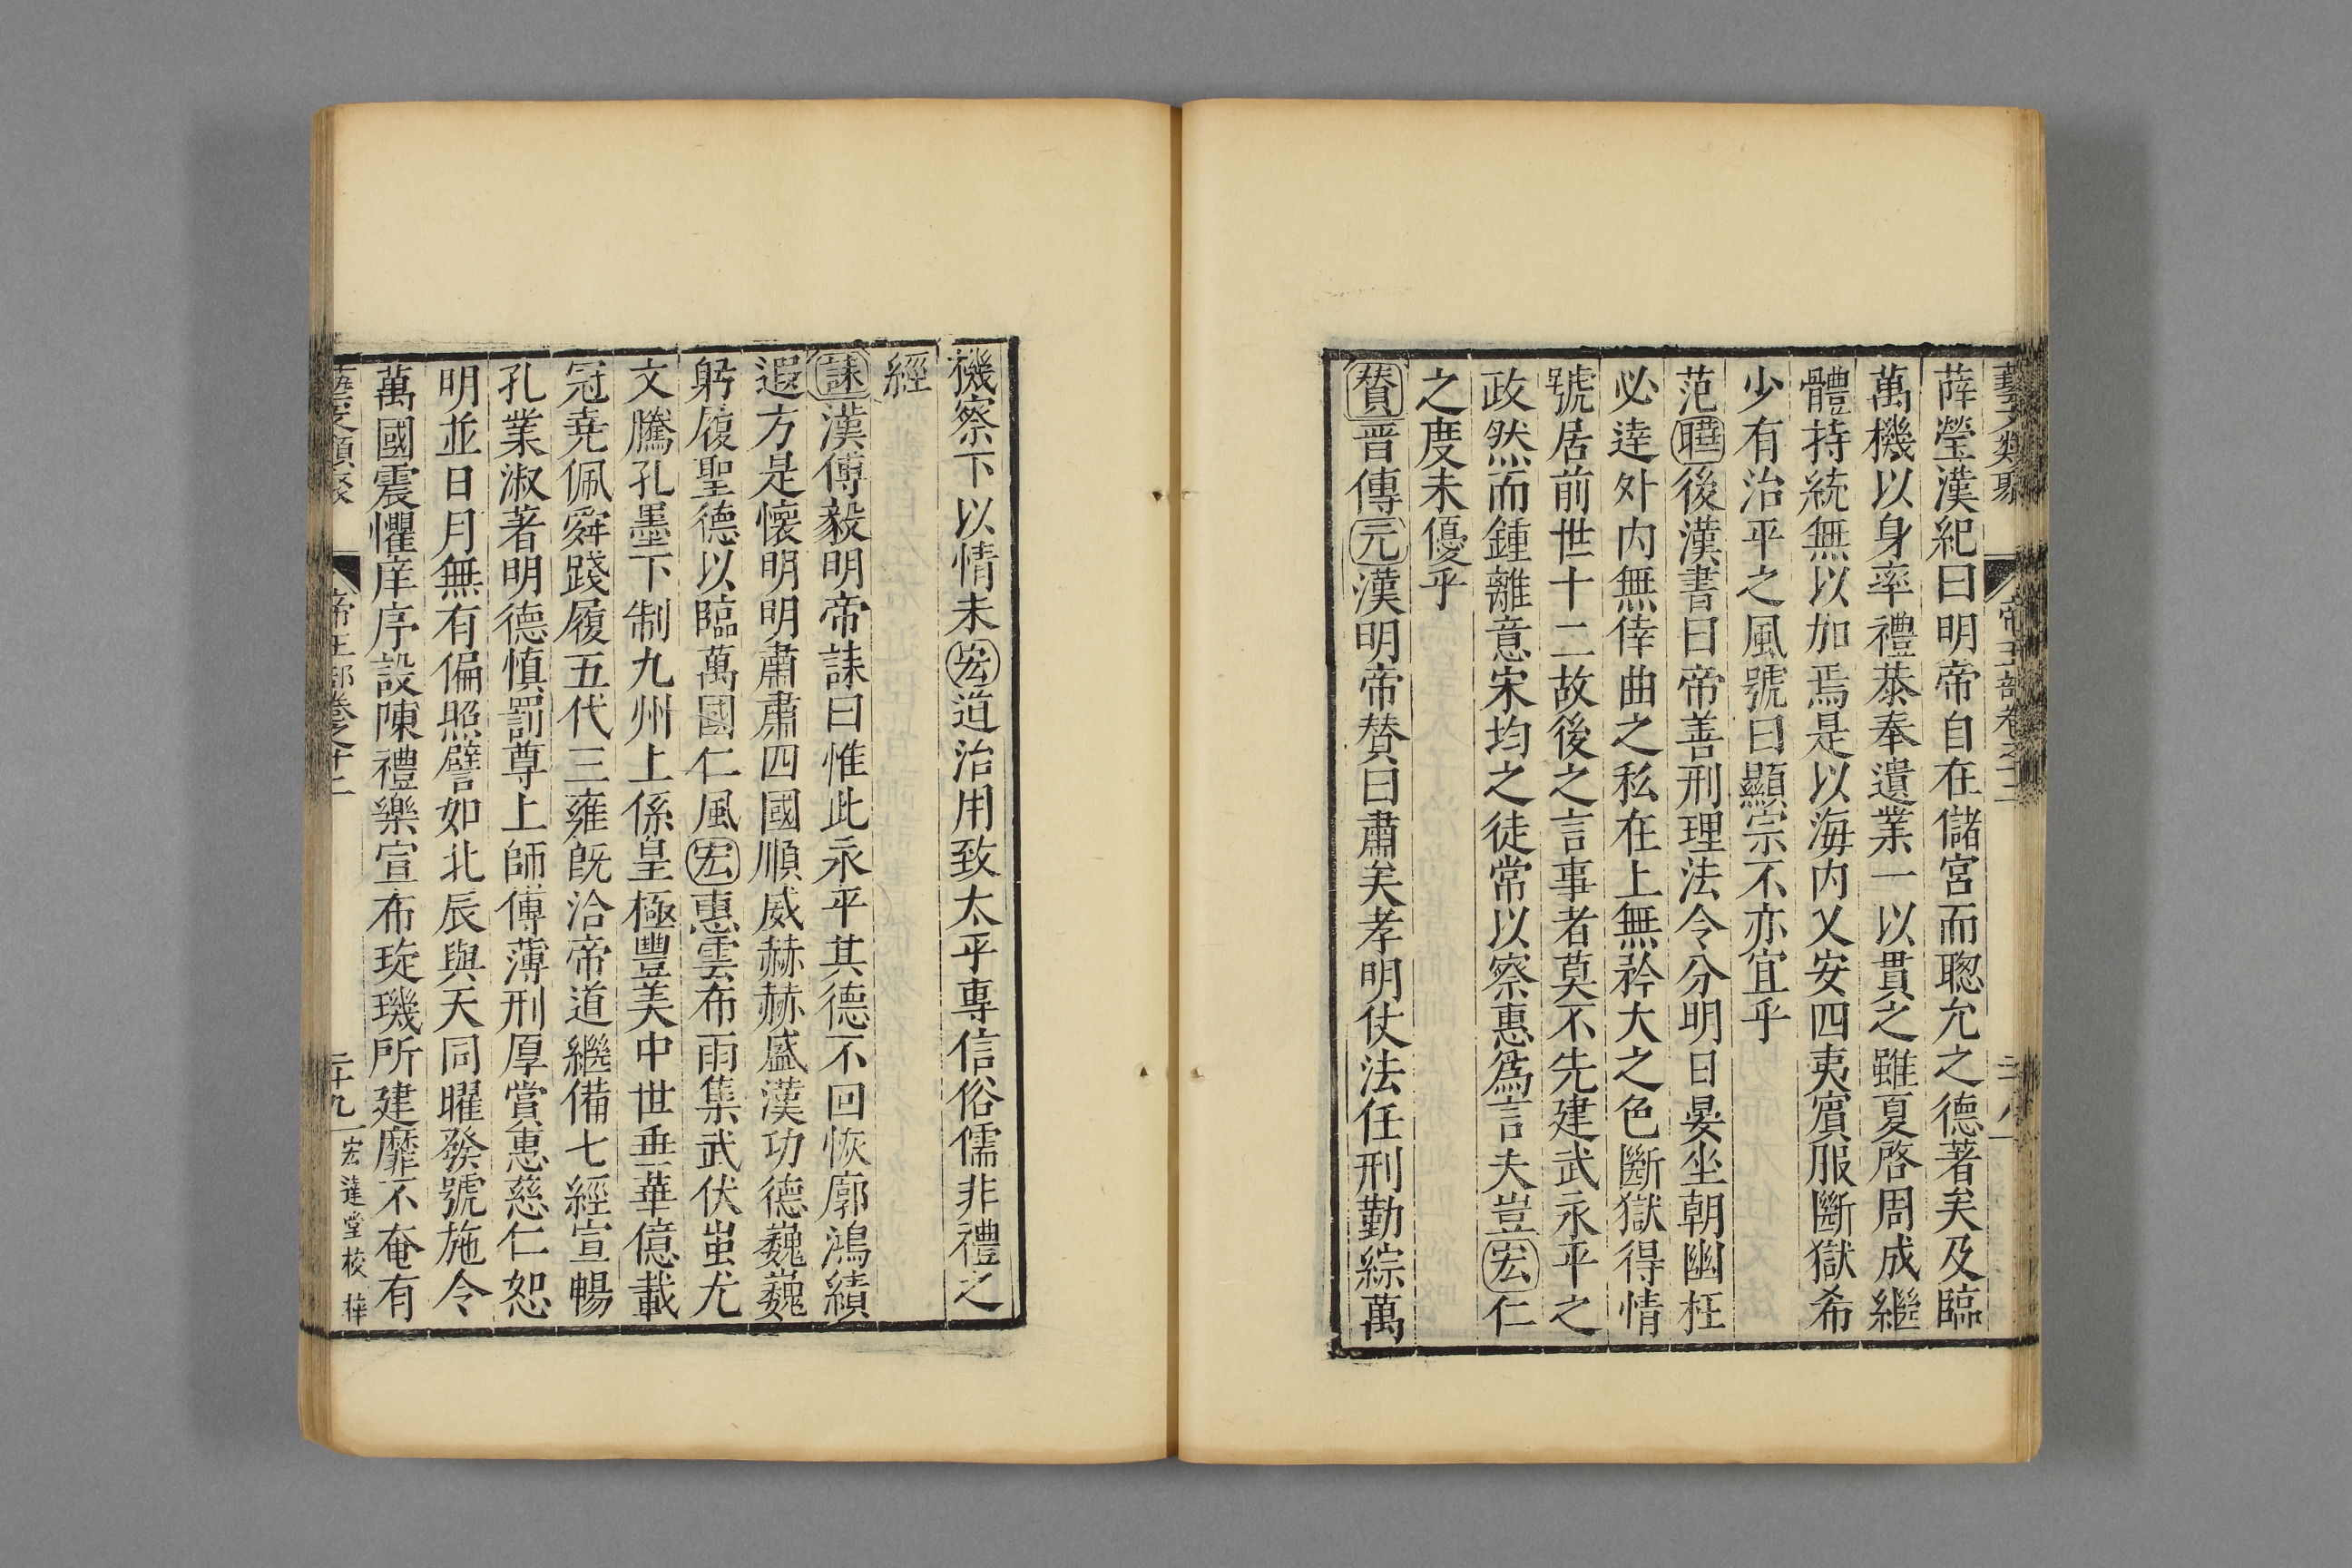 藝文類聚 帝王部卷之十二 二十八
薛瑩漢紀曰明帝自在儲宮而聰允之德著矣及臨
萬機以身率禮恭奉遺業一以貫之雖夏啓周成繼
體持統無以加焉是以海内乂安四夷賔服斷獄希
少有治平之風號曰顯宗不亦宜乎
范曄後漢書曰帝善刑理法令分明日晏坐朝幽枉
必逹外内無倖曲之私在上無矜大之色斷獄得情
號居前世十二故後之言事者莫不先建武永平之
政然而鍾離意宋均之徒常以察惠爲言夫豈宏仁
之度未優乎
賛晋傳元漢明帝賛曰肅矣孝明仗法任刑勤綜萬
機察下以情未宏道治用致太平專信俗儒非禮之
經
誄漢傅毅明帝誄曰惟此永平其德不回恢廓鴻績
遐方是懷明明肅肅四國順威赫赫盛漢功德巍巍
躬履聖德以臨萬國仁風宏惠雲布雨集武伏蚩尤
文騰孔墨下制九州上係皇極豐美中世垂華億載
冠堯佩舜踐履五代三雍旣洽帝道繼備七經宣暢
孔業淑著明德慎罰尊上師傅薄刑厚賞惠慈仁恕
明並日月無有偏照譬如北辰與天同曜發號施令
萬國震懼庠序設陳禮樂宣布琁璣所建靡不奄有
藝文類聚 帝王部卷之十二 二十九 宏達堂校梓